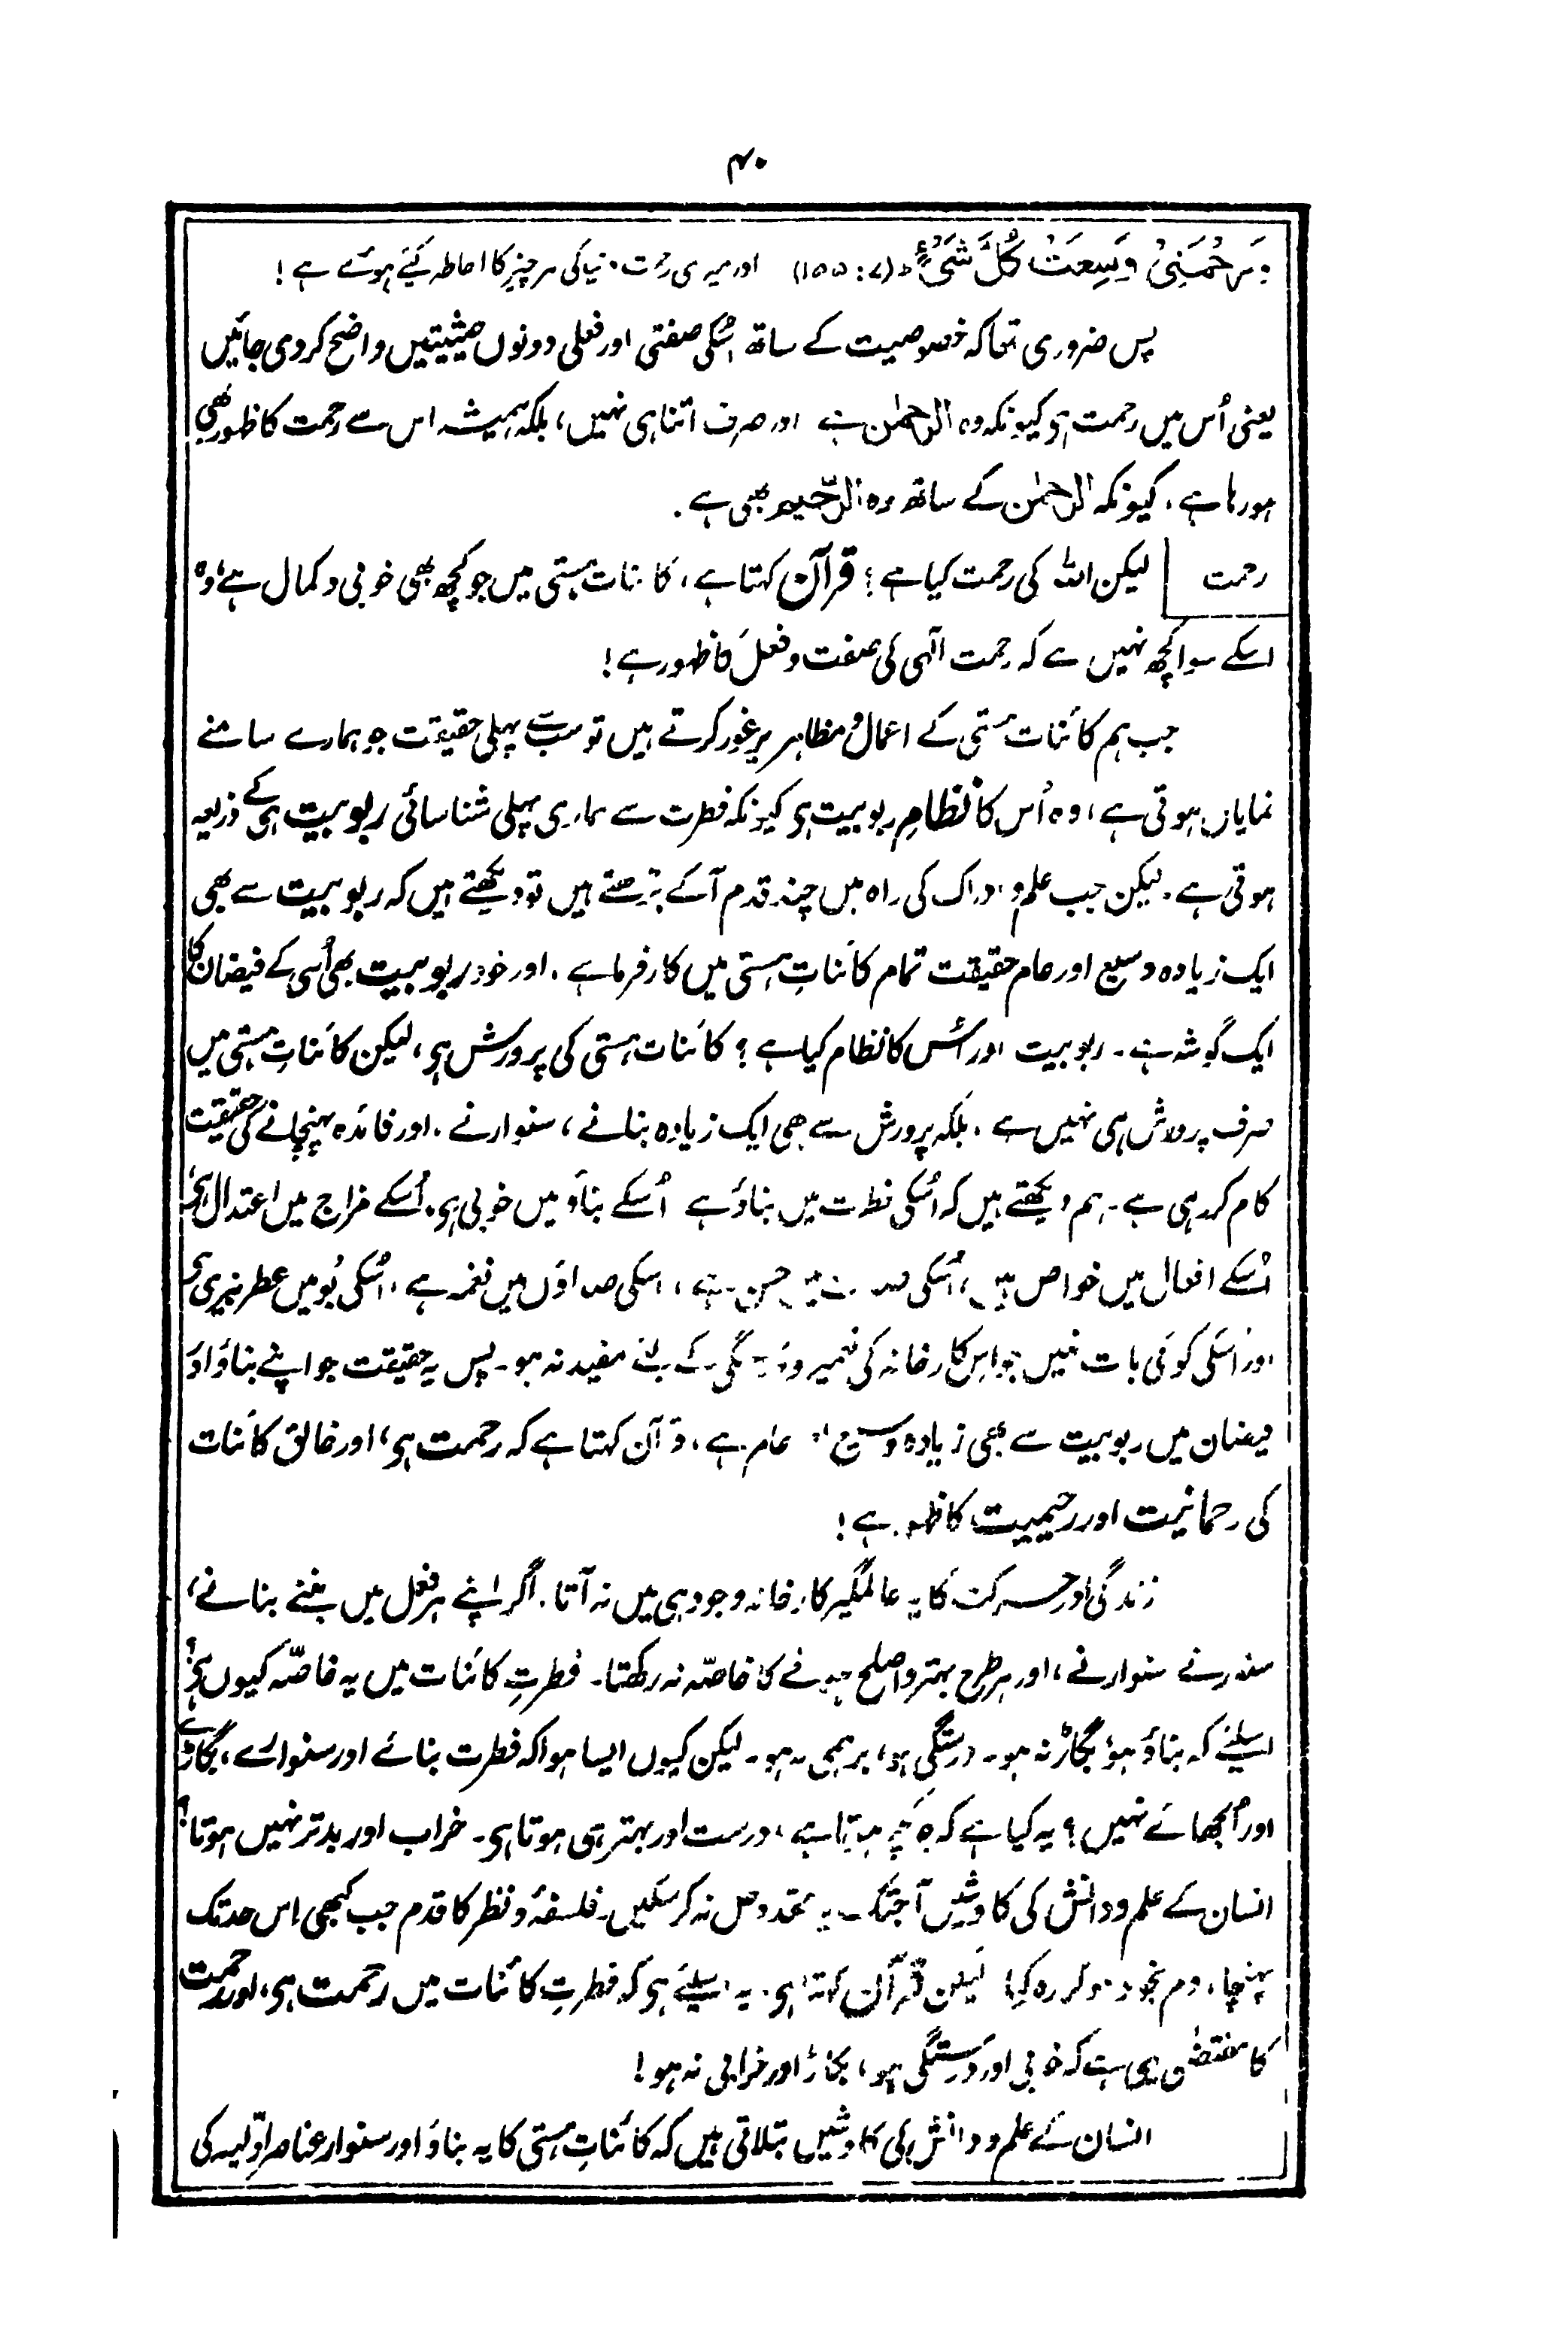 ۴۰
وَرَحْمَتِیْ وَسِعَتْ کُلَّ شَیْءٍ ط (۷:۱۵۵) اور میری رحمت دنیا کی ہر چیز کا احاطہ کئے ہوئے ہے!
پس ضروری تھا کہ خصوصیت کے ساتھ اُسکی صفتی اور فعلی دونوں حیثیتیں واضح کردی جائیں
یعنی اُس میں رحمت ہی کیونکہ وہ الرحمٰن ہے اور صرف اتنا ہی نہیں، بلکہ ہمیشہ اس سے رحمت کا ظہور بھی
ہورہا ہے، کیونکہ الرحمٰن کے ساتھ وہ الرّحیم بھی ہے.
رحمت
لیکن اللہ کی رحمت کیا ہے؟ قرآن کہتا ہے، کائنات ہستی میں جو کچھ بھی خوبی و کمال ہے، وہ
اسکے سوا کچھ نہیں ہے کہ رحمت الٰہی کی صفت و فعل کا ظہور ہے!
جب ہم کائنات ہستی کے اعمال و مظاہر پر غور کرتے ہیں تو سب سے پہلی حقیقت جو ہمارے سامنے
نمایاں ہوتی ہے، وہ اُس کا نظامِ ربوبیت ہی کیونکہ فطرت سے ہماری پہلی شناسائی ربوبیت ہی کے ذریعہ
ہوتی ہے. لیکن جب علم و ادراک کی راہ میں چند قدم آگے بڑھتے ہیں تو دیکھتے ہیں کہ ربوبیت سے بھی
ایک زیادہ وسیع اور عام حقیقت تمام کائناتِ ہستی میں کارفرما ہے. اور خود ربوبیت بھی اُسی کے فیضان کا
ایک گوشہ ہے۔ ربوبیت اور اُس کا نظام کیا ہے؟ کائنات ہستی کی پرورش ہی، لیکن کائناتِ ہستی میں
صرف پرورش ہی نہیں ہے. بلکہ پرورش سے بھی ایک زیادہ بنانے، سنوارنے. اور فائدہ پہنچانے کی حقیقت
کام کررہی ہے۔ ہم دیکھتے ہیں کہ اُسکی فطرت میں بناؤ ہے اُسکے بناؤ میں خوبی ہی. اُسکے مزاج میں اعتدال ہی،
اُسکے افعال میں خواص ہیں، اُسکی صورت میں حسن ہے، اسکی صداؤں میں نغمہ ہے. اُسکی بُو میں عطر بیزی ہی
اور اُسکی کوئی بات نہیں جو اس کارخانہ کی تعمیر و کے لئے مفید نہ ہو۔ پس یہ حقیقت جو اپنے بناؤ اور
فیضان میں ربوبیت سے بھی زیادہ وسیع اور عام ہے، قرآن کہتا ہے کہ رحمت ہی، اور خالق کائنات
کی رحمانیت اور رحیمیت کا ظہور ہے!
زندگی اور حرکت کا یہ عالمگیر کارخانہ وجود ہی میں نہ آتا. اگر اپنے ہر فعل میں بننے بنانے،
سنورنے سنوارنے، اور ہر طرح بہتر و اصلح ہونے کا خاصّہ نہ رکھتا۔ فطرتِ کائنات میں یہ خاصّہ کیوں ہی؟
اسلئے کہ بناؤ ہو، بگاڑ نہ ہو۔ درستگی ہو، برہمی نہ ہو۔ لیکن کیوں ایسا ہوا کہ فطرت بنائے اور سنوارے، بگاڑے
اور اُلجھائے نہیں؟ یہ کیا ہے کہ جو کچھ ہوتا ہے، درست اور بہتر ہی ہوتا ہی۔ خراب اور بدتر نہیں ہوتا؟
انسان کے علم و دانش کی کاوشیں آجتک یہ عقدہ حل نہ کرسکیں۔ فلسفۂ و نظر کا قدم جب کبھی اس حد تک
پہنچا، دم بخود ہوکر رہ گیا لیکن قرآن کہتا ہی. یہ اسلئے ہی کہ فطرتِ کائنات میں رحمت ہی، اور رحمت
کا مقتضٰی یہی ہے کہ خوبی اور درستگی ہو، بگاڑ اور خرابی نہ ہو!
انسان کے علم و دانش کی کاوشیں بتلاتی ہیں کہ کائناتِ ہستی کا یہ بناؤ اور سنوار عناصر اوّلیہ کی